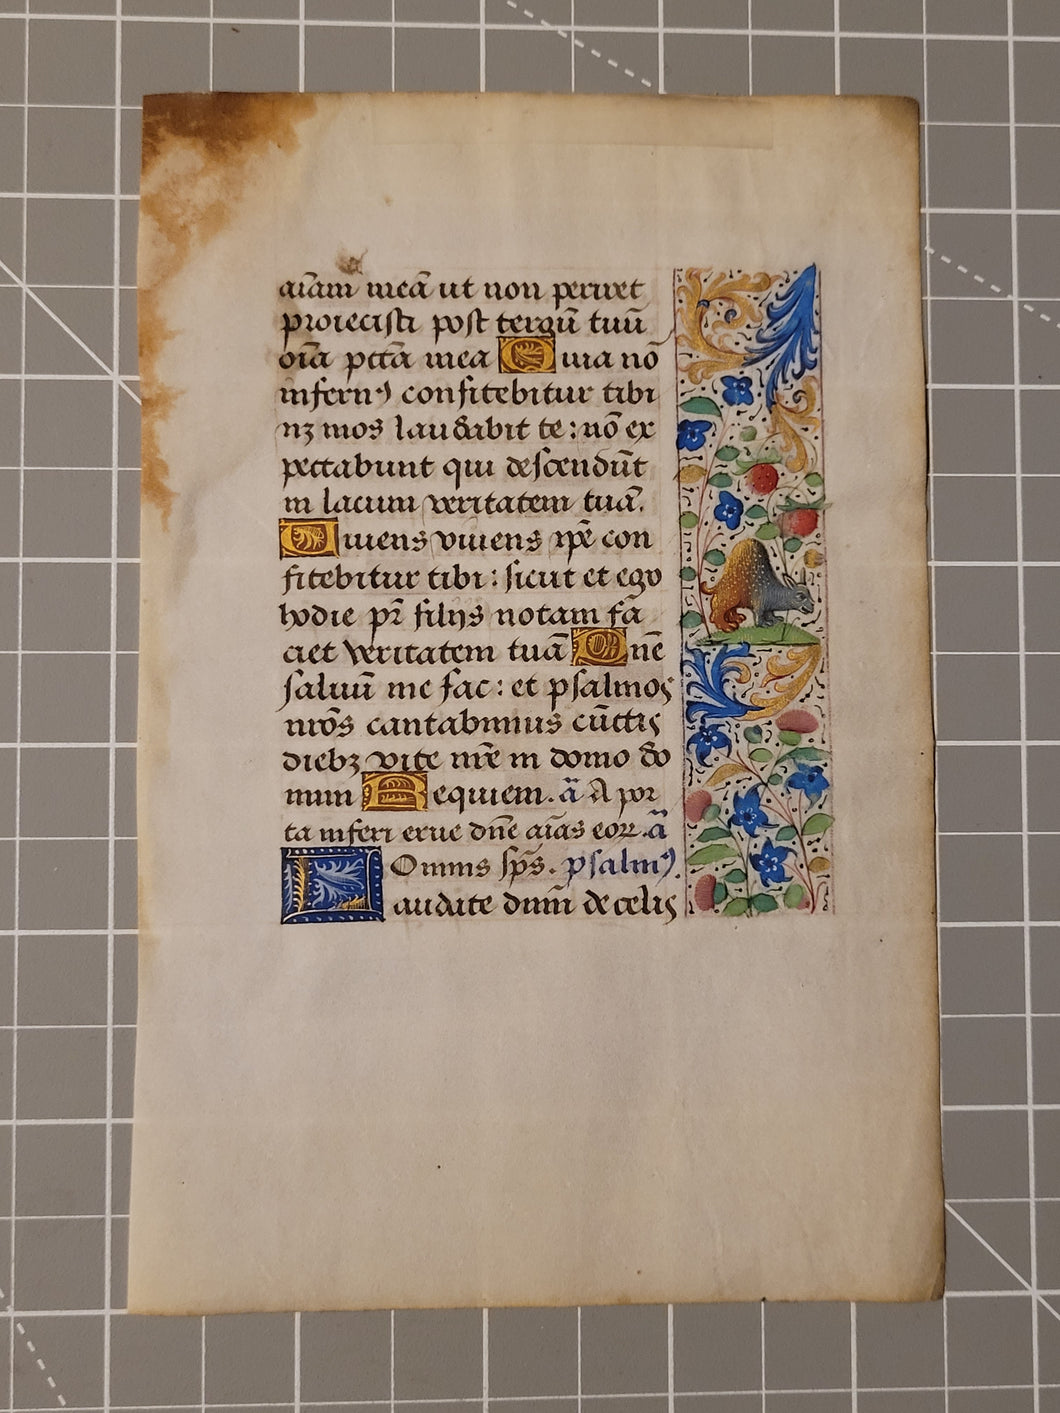 aīam meā ut non periret
proiecisti post tergū tuū
oīa pctā mea Quia nō
infernꝰ confitebitur tibi
nꝫ mos laudabit te : nō ex
pectabunt qui descendūt
in lacum veritatem tuā.
Viuens viuens ip̄e con
fitebitur tibi : sicut et ego
hodie pr̄ filijs notam fa
ciet veritatem tuā Dn̄e
saluū me fac : et psalmos
nr̄os cantabimus cūctis
diebꝫ vite nr̄e in domo do
mini Requiem. ā A por
ta inferi erue dn̄e aīas eoꝝ. ā
Omnis sp̄s. psalmꝰ.
Laudate dnm̄ de celis